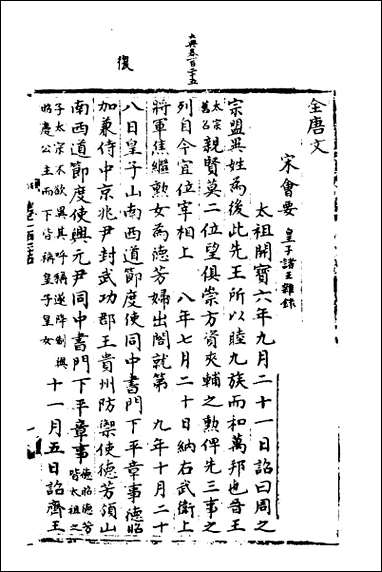 大典卷一百二十五
復
全唐文
宋會要 皇子諸王雜錄
太祖開寶六年九月二十一日詔曰周之
宗盟異姓為後此先王所以睦九族而和萬邦也晉王
太宗舊名親賢莫二位望俱崇方資夾輔之勲俾先三事之
列自今宜位宰相上 八年七月二十日納右武衛上
將軍焦繼勲女為德芳婦出閤就第 九年十月二十
八日皇子山南西道節度使同中書門下平章事德昭
加兼侍中京兆尹封武功郡王貴州防禦使德芳領山
南西道節度使興元尹同中書門下平章事德昭德芳皆太祖之
子太宗不欲異其呼稱遂降制與昭慶公主而下皆稱皇子皇女 十一月五日詔齊王